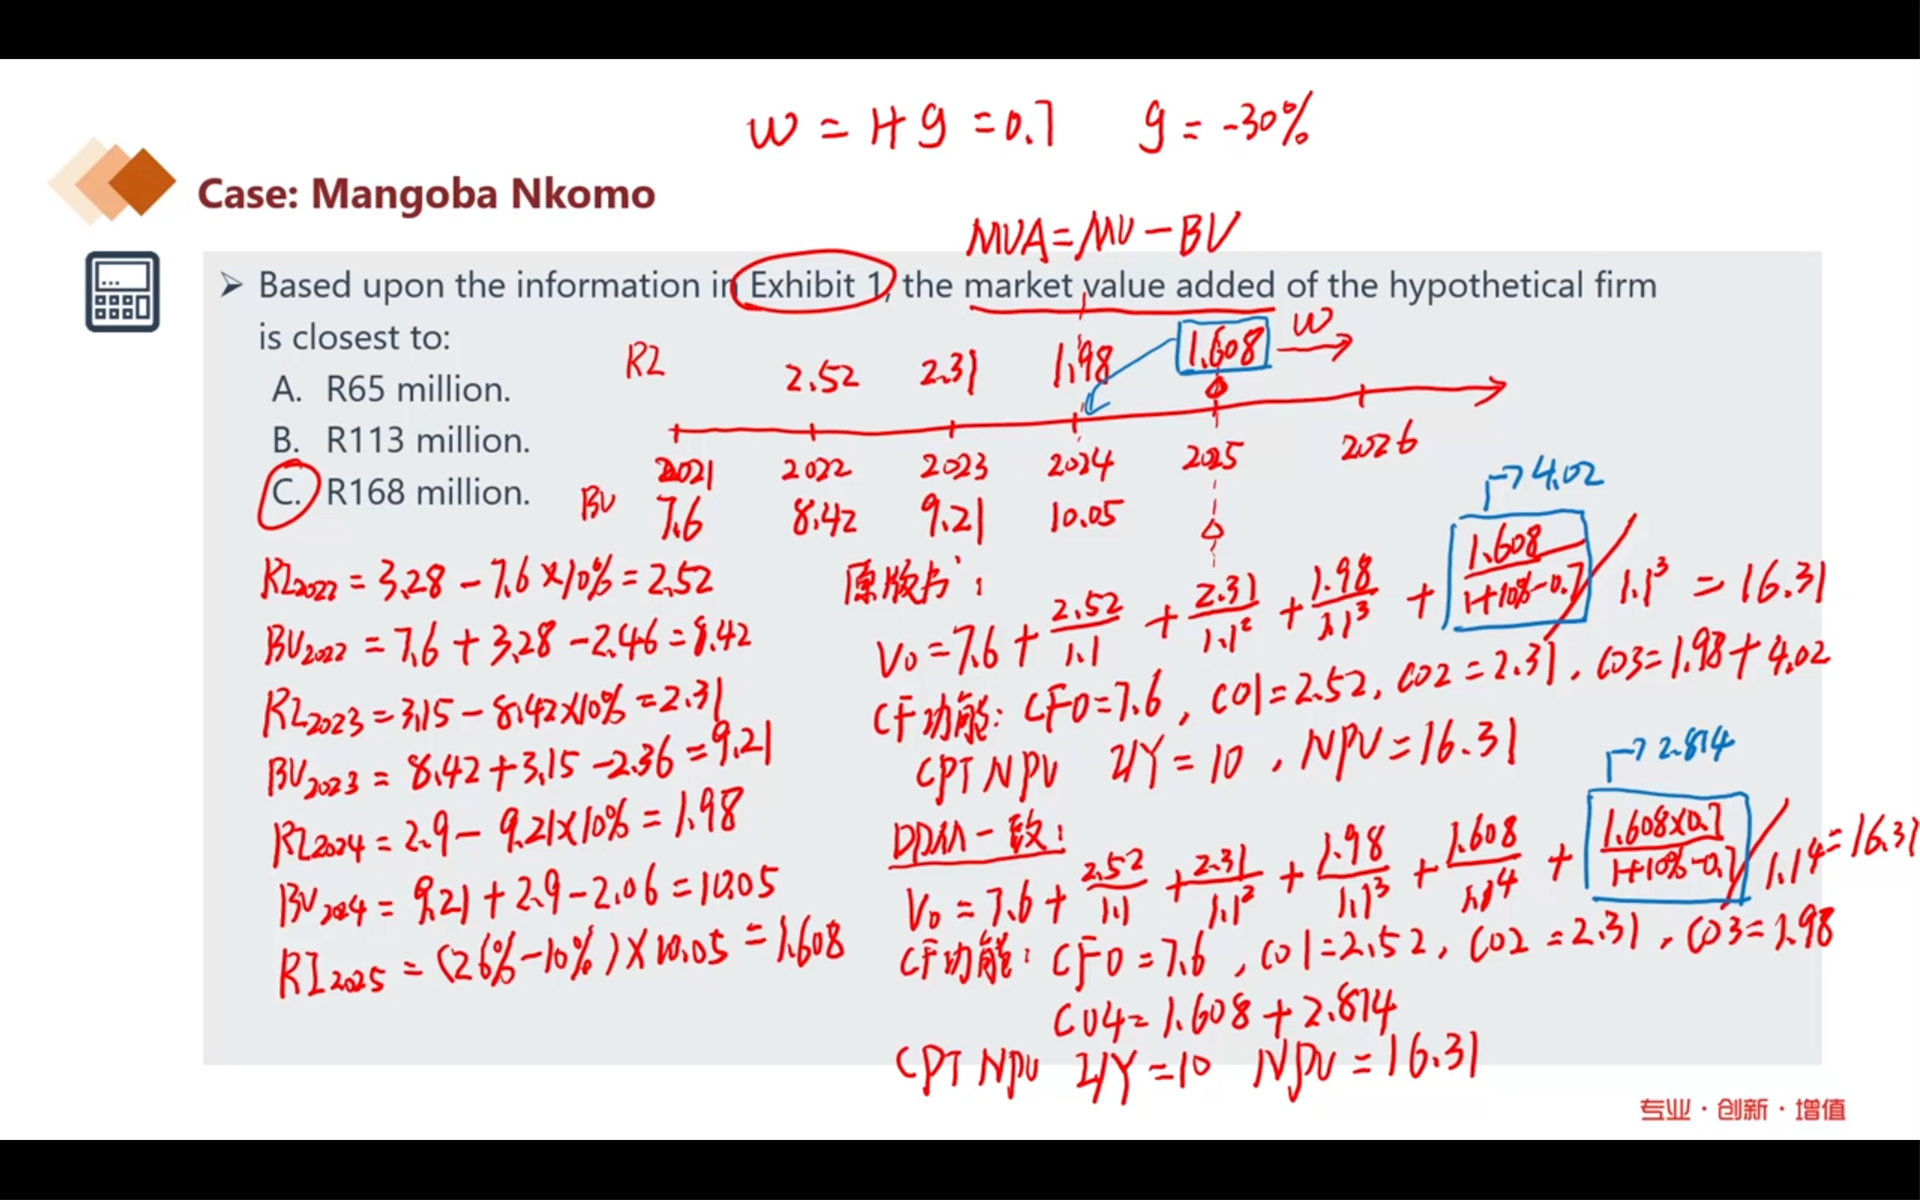 w = 1+g = 0.7 g = -30%
Case: Mangoba Nkomo
MVA = MV - BV
➢ Based upon the information in Exhibit 1, the market value added of the hypothetical firm
is closest to:
A. R65 million.
B. R113 million.
C. R168 million.
RI 2.52 2.31 1.98 1.608 w
2021 2022 2023 2024 2025 2026
BV 7.6 8.42 9.21 10.05
RI2022 = 3.28 - 7.6 × 10% = 2.52
BV2022 = 7.6 + 3.28 - 2.46 = 8.42
RI2023 = 3.15 - 8.42 × 10% = 2.31
BV2023 = 8.42 + 3.15 - 2.36 = 9.21
RI2024 = 2.9 - 9.21 × 10% = 1.98
BV2024 = 9.21 + 2.9 - 2.06 = 10.05
RI2025 = (26% - 10%) × 10.05 = 1.608
原版书:
→ 4.02
V0 = 7.6 + 2.52/1.1 + 2.31/1.1² + 1.98/1.1³ + 1.608/(1+10%-0.7) / 1.1³ = 16.31
CF功能: CF0 = 7.6, C01 = 2.52, C02 = 2.31, C03 = 1.98 + 4.02
CPT NPV I/Y = 10, NPV = 16.31
DDM一致:
→ 2.814
V0 = 7.6 + 2.52/1.1 + 2.31/1.1² + 1.98/1.1³ + 1.608/1.1⁴ + 1.608×0.7/(1+10%-0.7) / 1.1⁴ = 16.31
CF功能: CF0 = 7.6, C01 = 2.52, C02 = 2.31, C03 = 1.98
C04 = 1.608 + 2.814
CPT NPV I/Y = 10 NPV = 16.31
专业·创新·增值